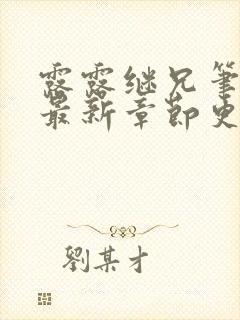 露露继兄笔
最新章節史
劉某才